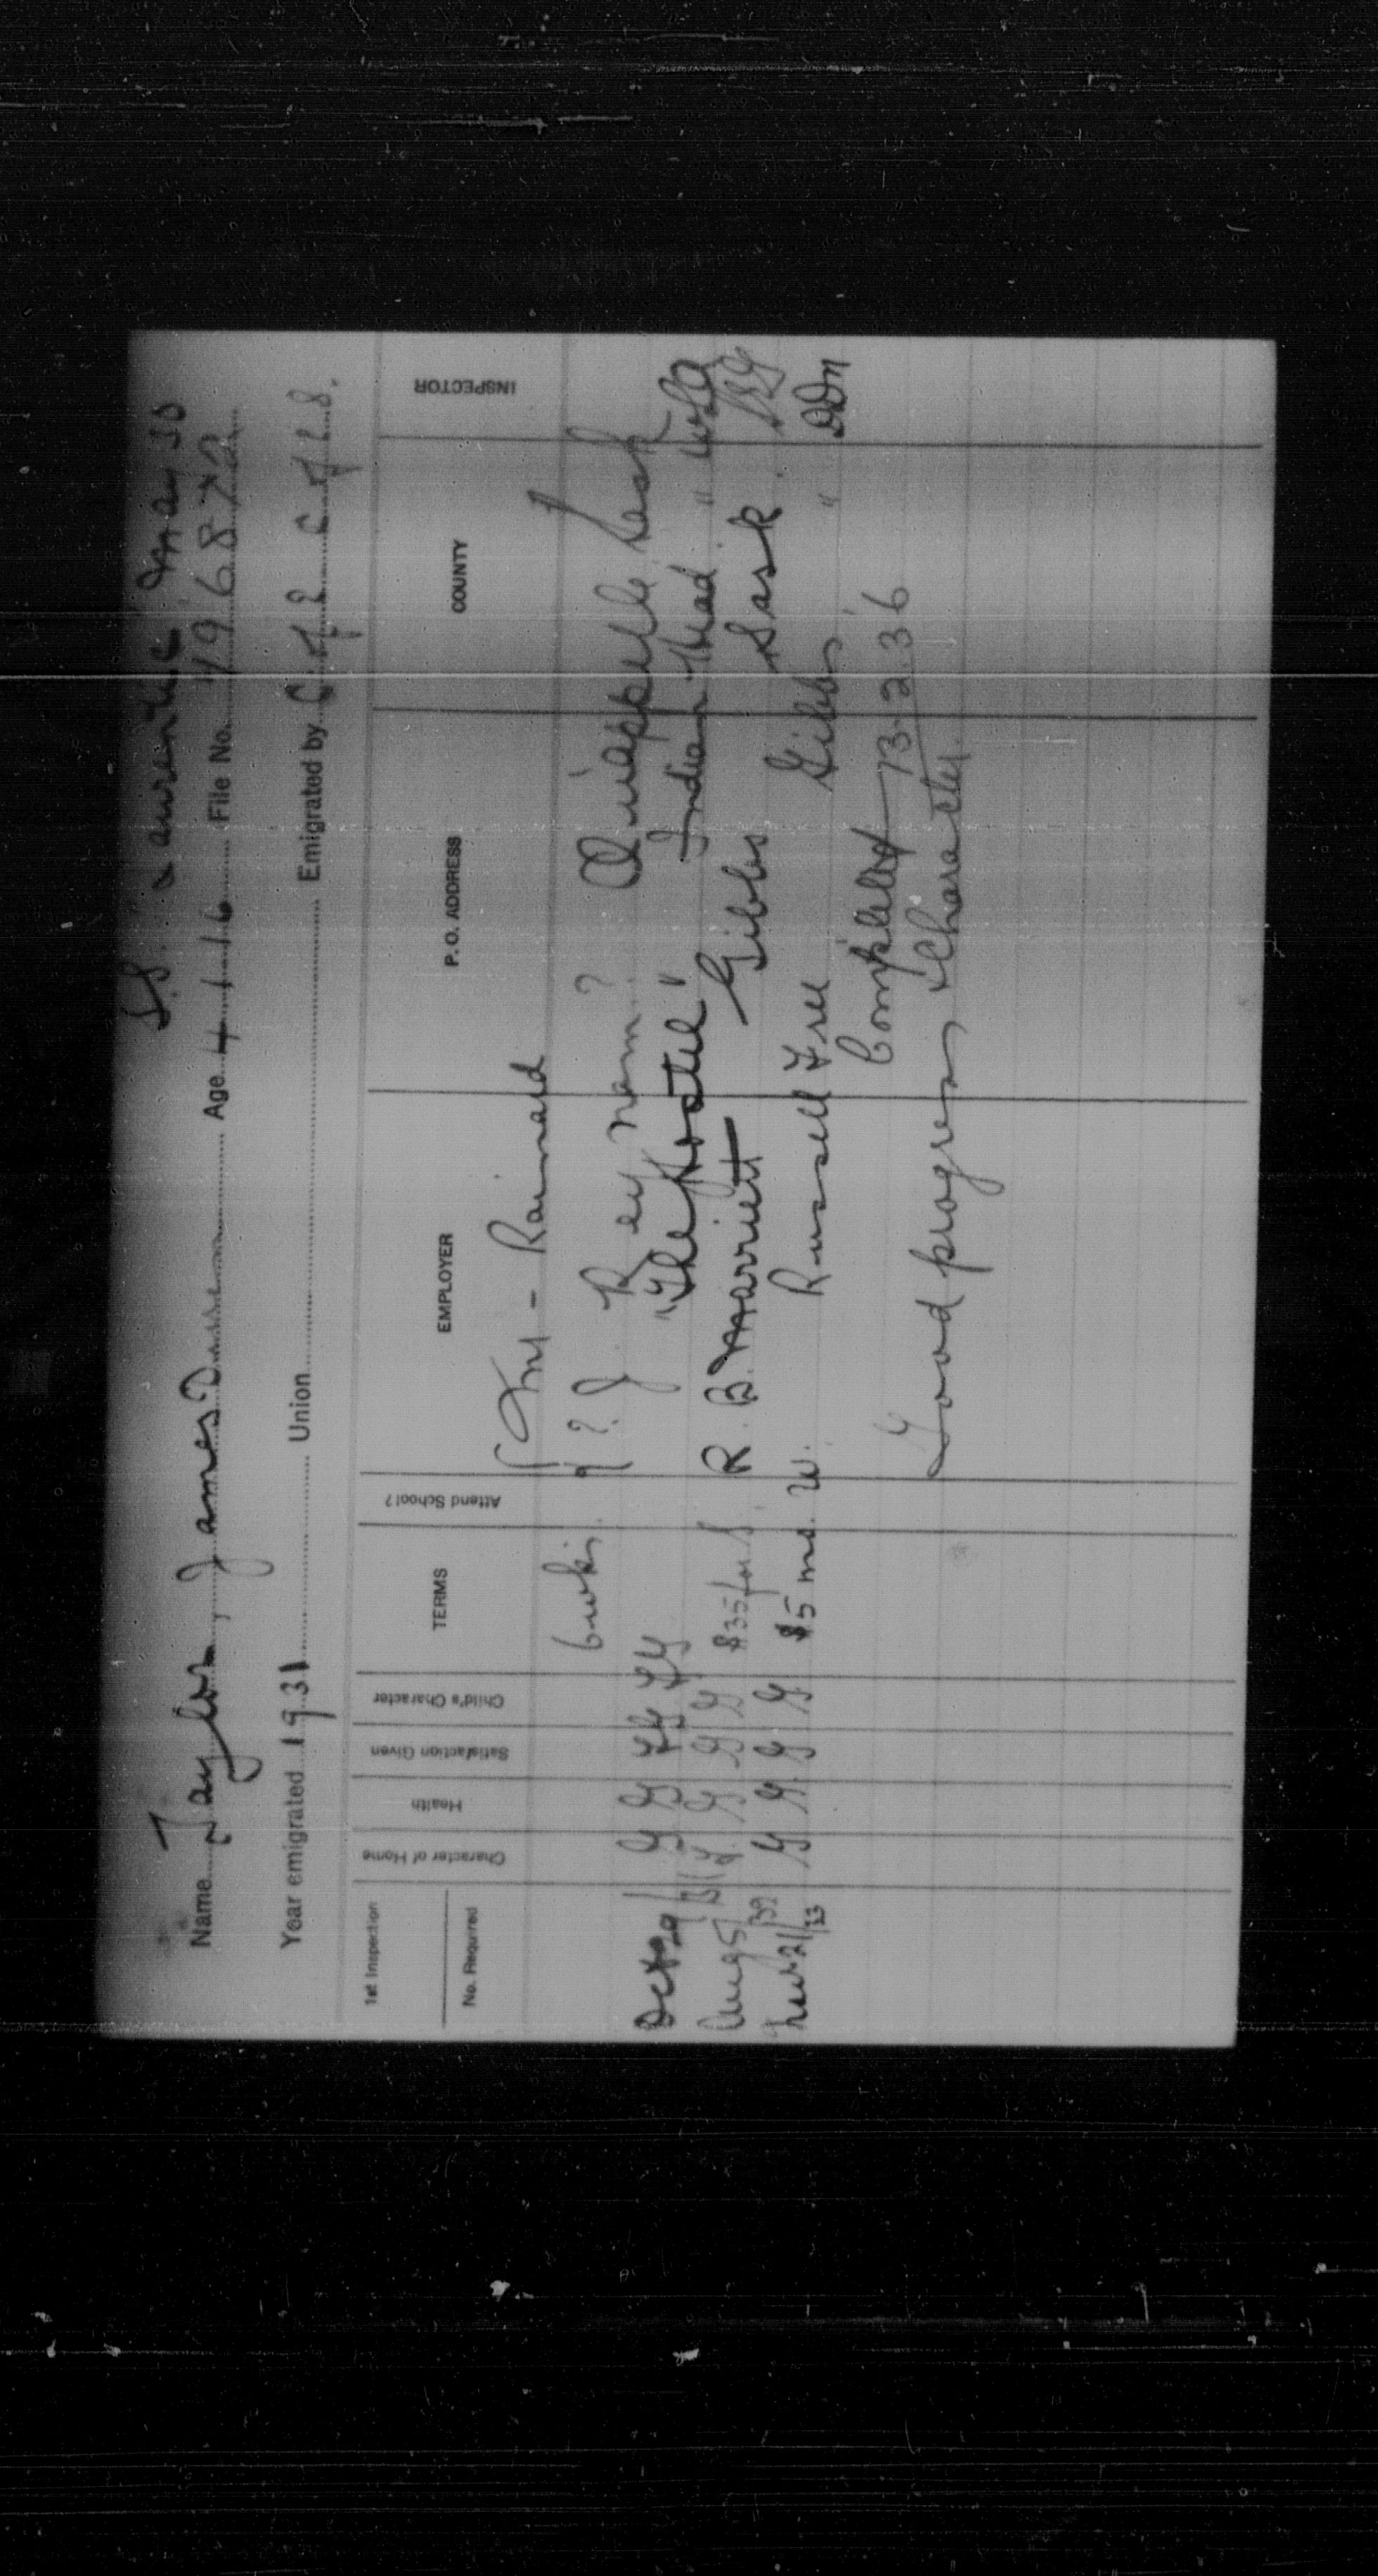 S.S. Laurentic May 30
Name Taylor, James D. Age 4-1-16 File No. 196872
Year emigrated 1931 Union Emigrated by C of E C of E
1st Inspection
No. Required Character of Home Health Satisfaction Given Child's Character TERMS Attend School? EMPLOYER P. O. ADDRESS COUNTY INSPECTOR
Rainald
6 wks. ? J. Qu'appelle Sask
Oct 29/31 G G "The Hostel" Indian Head "
Aug 5/32 G G G $35 for R. B. Marriett Gibbs Sask
21/33 G G G G $5 mo. W. Russell Free Gibbs " DDM
Completed 13-2-36
Good progress & Character.